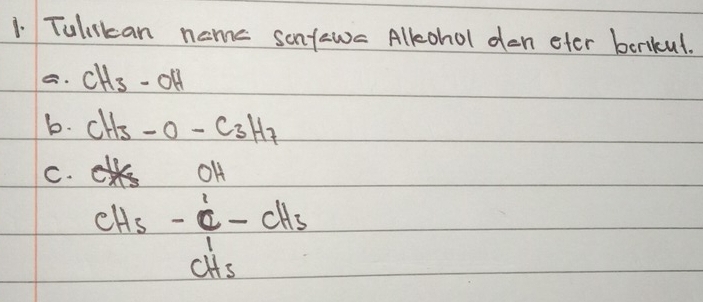 1. Tuliskan nama senyawa Alkohol dan eter berikut.
a. CH3 - OH
b. CH3 - O - C3H7
c. OH
CH3 - C - CH3
CH3